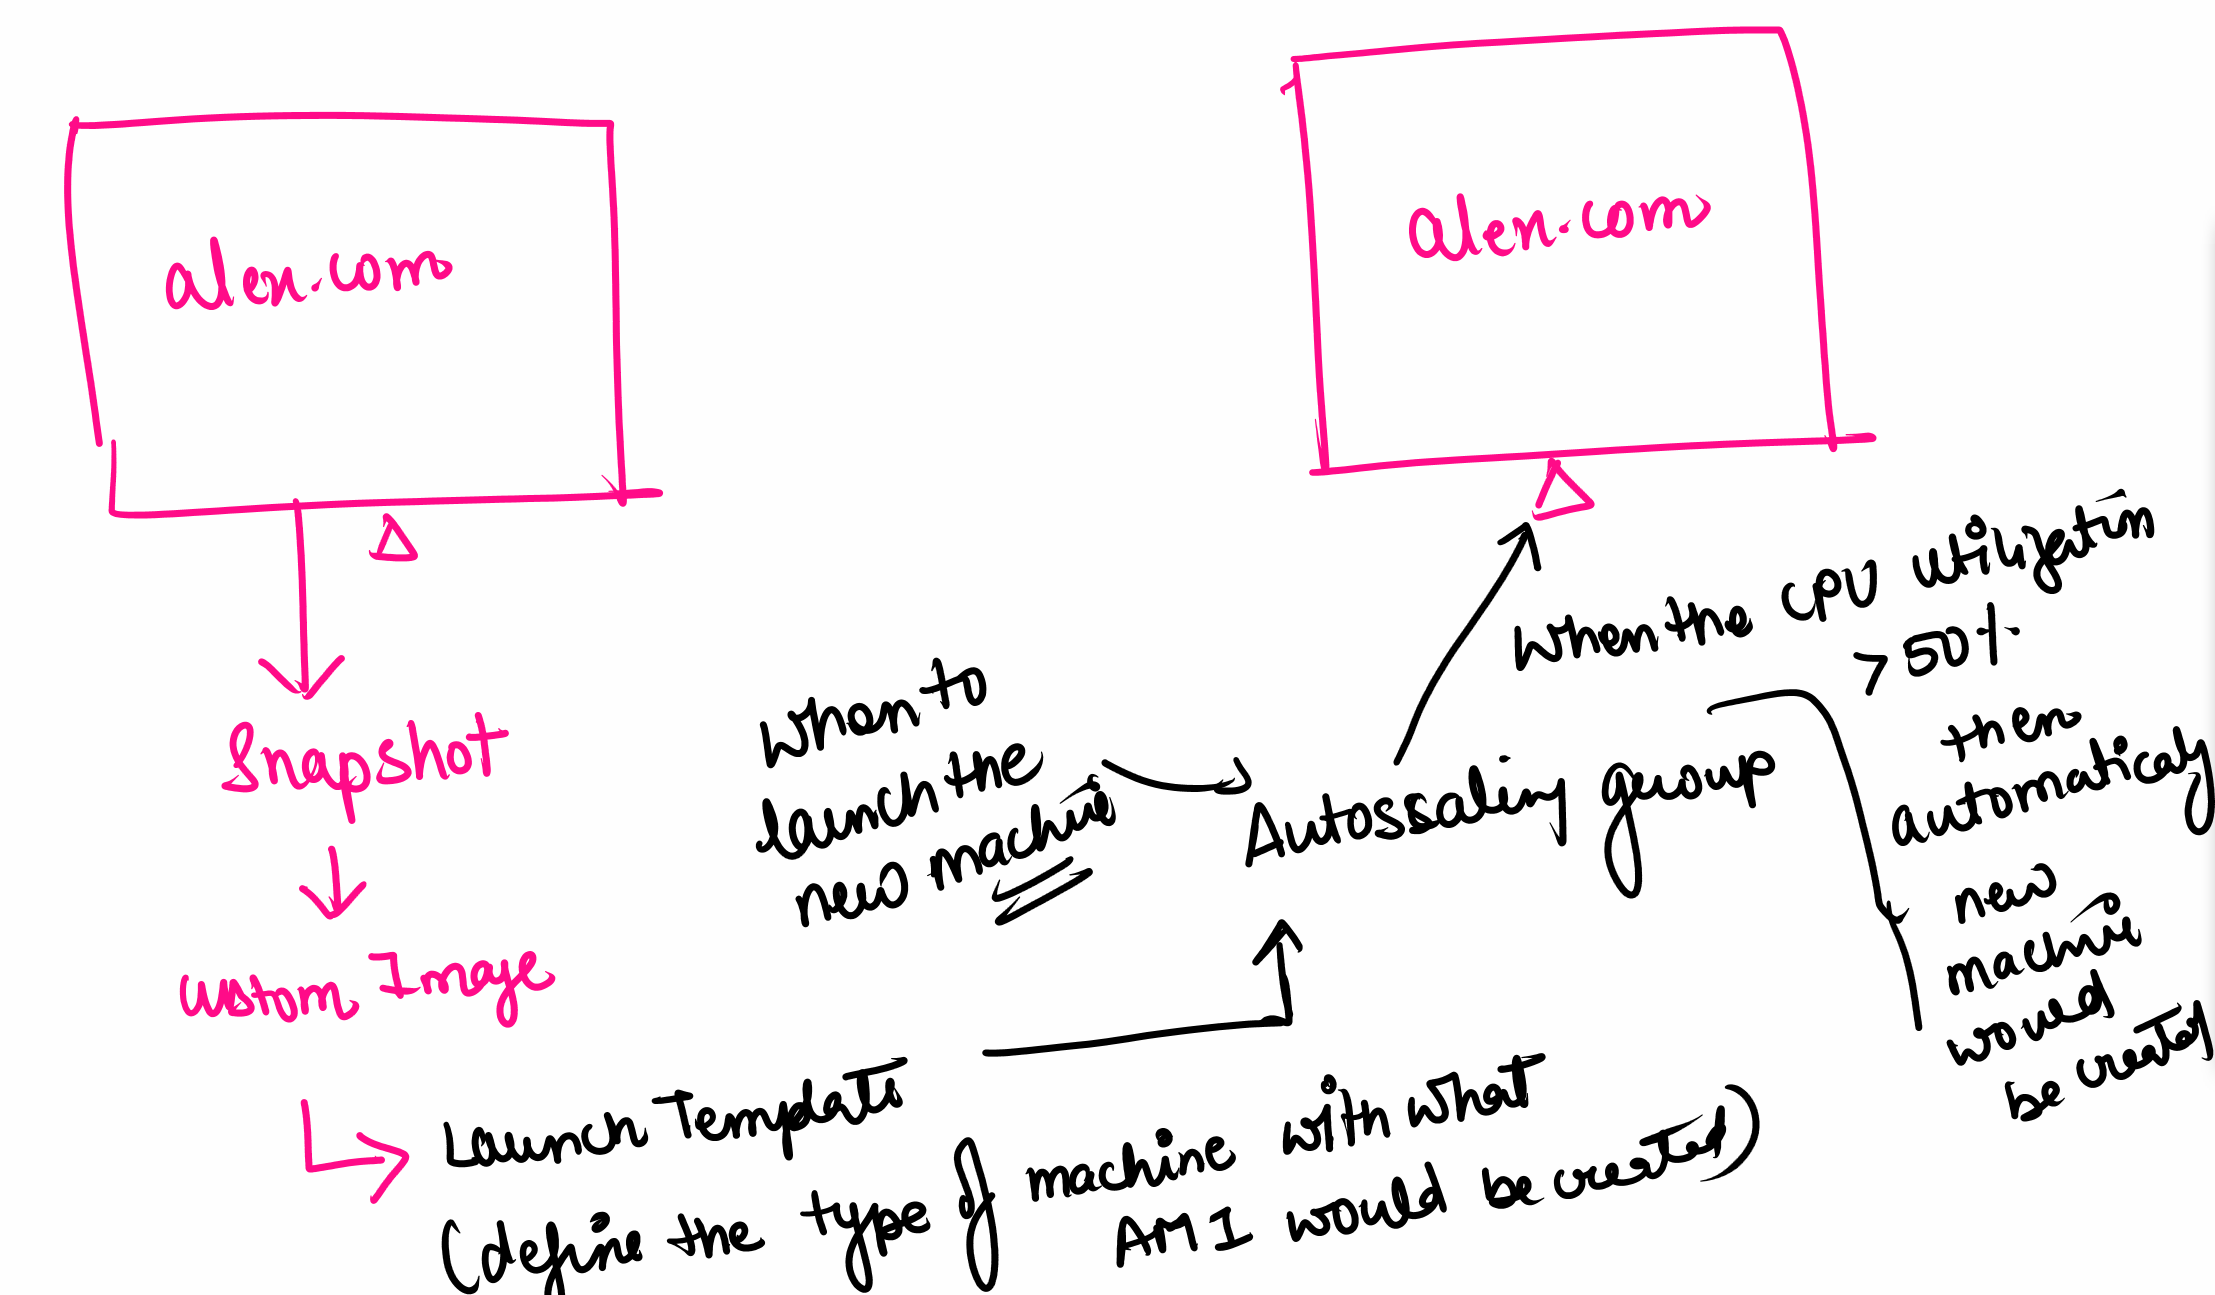 alen.com
alen.com
Snapshot
custom Image
Launch Template
(define the type of machine with what
AMI would be created)
When to
launch the
new machine
Autossaling group
When the CPU utilization
> 50%
then
automaticaly
new
machine
would
be created